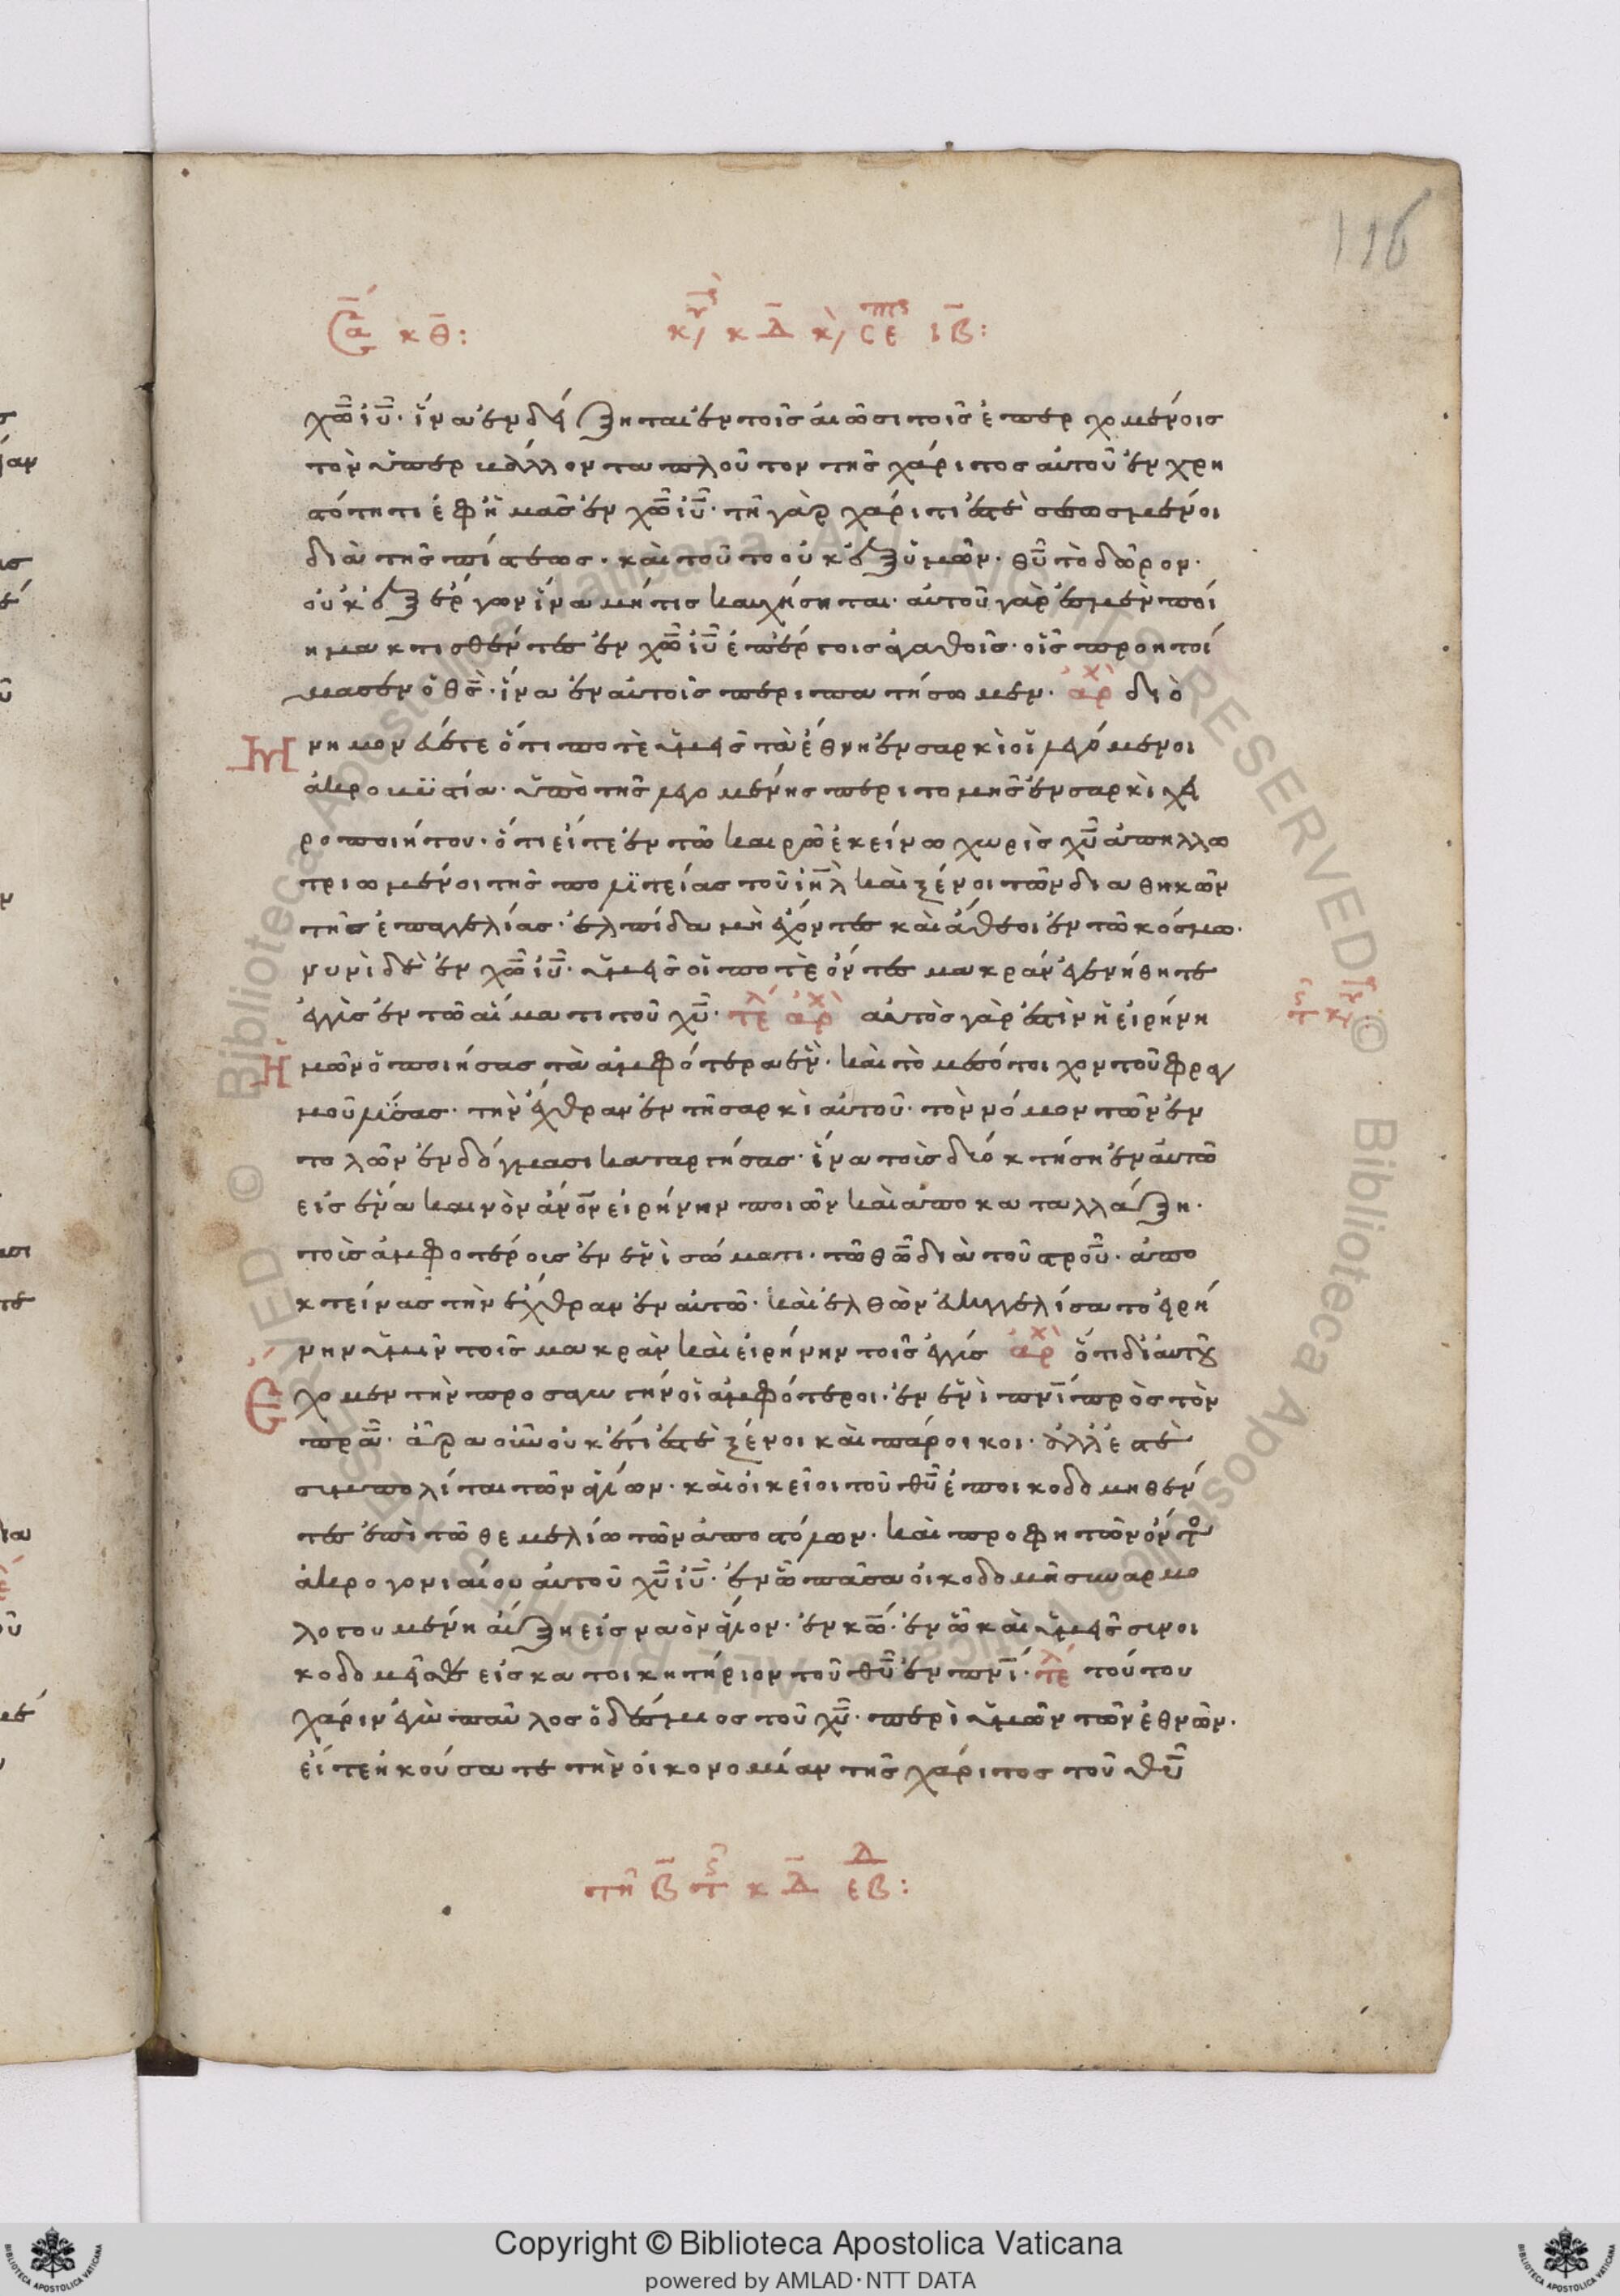 116
κθ:
κδ κ, ιβ:
χω ιυ· ἵνα ἐνδείξηται ἐν τοῖς αἰῶσι τοῖς ἐπερχομένοις
τὸν ὑπερβάλλοντα πλοῦτον τῆς χάριτος αὐτοῦ ἐν χρη
στότητι ἐφ ἡμᾶς ἐν χω ιυ· τῇ γὰρ χάριτι ἐστὲ σεσωσμένοι
διὰ τῆς πίστεως· καὶ τοῦτο οὐκ ἐξ ὑμῶν· θυ τὸ δῶρον·
οὐκ ἐξ ἔργων ἵνα μή τις καυχήσηται· αὐτοῦ γὰρ ἐσμὲν ποί
ημα κτισθέντες ἐν χω ιυ ἐπ ἔργοις ἀγαθοῖς· οἷς προητοί
μασεν ὁ θς· ἵνα ἐν αὐτοῖς περιπατήσωμεν· ἀρχ διὸ
Μνημονεύετε ὅτι ποτὲ ὑμεῖς τὰ ἔθνη ἐν σαρκὶ οἱ λεγόμενοι
ἀκροβυστία· ὑπὸ τῆς λεγομένης περιτομῆς ἐν σαρκὶ χει
ροποιήτου· ὅτι εἶτε ἐν τῶ καιρῶ ἐκείνω χωρὶς χυ ἀπηλλο
τριωμένοι τῆς πολιτείας τοῦ ιηλ καὶ ξένοι τῶν διαθηκῶν
τῆς ἐπαγγελίας· ἐλπίδα μὴ ἔχοντες καὶ ἄθεοι ἐν τῶ κόσμω·
νυνὶ δὲ ἐν χω ιυ· ὑμεῖς οἵ ποτὲ ὄντες μακρὰν ἐγενήθητε
ἐγγὺς ἐν τῶ αἵματι τοῦ χυ· τελ ἀρχ αὐτὸς γὰρ ἐστὶν ἡ εἰρήνη
Ἡμῶν ὁ ποιήσας τὰ ἀμφότερα ἕν· καὶ τὸ μεσότοιχον τοῦ φραγ
μοῦ λύσας· τὴν ἔχθραν ἐν τῇ σαρκὶ αὐτοῦ· τὸν νόμον τῶν ἐν
τολῶν ἐν δόγμασι καταργήσας· ἵνα τοὺς δύο κτήσῃ ἐν ἑαυτῶ
εἰς ἕνα καινὸν ανον εἰρήνην ποιῶν καὶ ἀποκαταλλάξῃ·
τοὺς ἀμφοτέρους ἐν ἑνὶ σώματι· τῶ θω διὰ τοῦ στρου· ἀπο
κτείνας τὴν ἔχθραν ἐν αὐτῶ· καὶ ἐλθὼν εὐηγγελίσατο εἰρή
νην ὑμῖν τοῖς μακρὰν καὶ εἰρήνην τοῖς ἐγγύς ἀρχ ὅτι δι αὐτοῦ
Ἔχομεν τὴν προσαγωγὴν οἱ ἀμφότεροι· ἐν ἑνὶ πνι πρὸς τὸν
πρα· ἄρα οὖν οὐκέτι ἐστὲ ξένοι καὶ πάροικοι· ἀλλ ἐστὲ
συμπολίται τῶν ἁγίων· καὶ οἰκεῖοι τοῦ θυ ἐποικοδομηθέν
τες ἐπὶ τῶ θεμελίω τῶν ἀποστόλων· καὶ προφητῶν ὄντος
ἀκρογονιαίου αὐτοῦ χυ ιυ· ἐν ᾧ πᾶσα οἰκοδομὴ συναρμο
λογουμένη αὔξῃ εἰς ναὸν ἅγιον· ἐν κω· ἐν ᾧ καὶ ὑμεῖς συνοι
κοδομεῖσθε εἰς κατοικητήριον τοῦ θυ ἐν πνι· τελ τούτου
χάριν ἐγὼ παῦλος ὁ δέσμιος τοῦ χυ· περὶ ὑμῶν τῶν ἐθνῶν·
εἶτε ἠκούσατε τὴν οἰκονομίαν τῆς χάριτος τοῦ θυ
τῇ β κδ εβ:
Copyright © Biblioteca Apostolica Vaticana
powered by AMLAD·NTT DATA